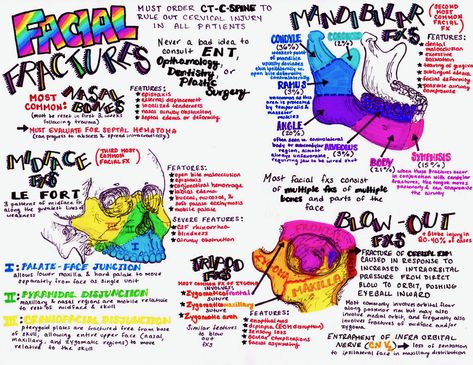 FACIAL
FRACTURES
MUST ORDER CT-C-SPINE TO
RULE OUT CERVICAL INJURY
IN ALL PATIENTS
Never a bad idea to
consult ENT,
Opthamology,
Dentistry, or
Plastic
Surgery
MOST
COMMON:
NASAL
BONES
(must be reset in first 2 weeks
following trauma)
MUST EVALUATE FOR SEPTAL HEMATOMA
FEATURES:
epistaxis
external displacement
localized tenderness
nasal airway obstruction
septal edema or deformity
MANDIBULAR
FXS
(SECOND MOST
COMMON
FACIAL
FX)
CONDYLE
(36%)
CORONOID
(2%)
RAMUS
(3%)
ANGLE
(20%)
ALVEOLUS
(3%)
BODY
(21%)
SYMPHYSIS
(15%)
FEATURES:
dental
malocclusion
tearing of gingiva
sublingual edema
facial deformity
possible airway
compromise
Most facial fxs consist of
multiple fxs of multiple
bones and parts of the
face
MIDFACE
FXS
(THIRD MOST
COMMON
FACIAL FX)
LE FORT
3 patterns of midface fx
along the greatest lines of
weakness
FEATURES:
open bite malocclusion
epistaxis
conjunctival hemorrhage
facial edema
mobile palate
SEVERE FEATURES:
CSF rhinorrhea
blindness
airway obstruction
I: PALATE-FACE JUNCTION
allows lower maxilla & hard palate to move
separately from face as single unit
II: PYRAMIDAL DISJUNCTION
maxillary & nasal regions are mobile relative
to rest of midface & skull
III: CRANIOFACIAL DISJUNCTION
pterygoid plates are fractured free from base
of skull, allowing entire upper face (nasal,
maxillary, and zygomatic regions) to move
related to the skull
TRIPOD
FXS
MOST COMMON FX OF ZYGOMA
INVOLVES:
Zygomaticofrontal suture
Zygomaticomaxillary suture
Zygomatic arch
Similar features
to blow
out fxs
FEATURES:
enophthalmos
diplopia (EOM disruption)
sensory loss
ocular complications
facial asymmetry
FRONTAL
ZYGOMA
MAXILLA
BLOW-OUT
FXS
Globe injury in
20-40% of cases
FRACTURE OF ORBITAL RIM
OCCUR IN RESPONSE TO
INCREASED INTRAORBITAL
PRESSURE FROM DIRECT
BLOW TO ORBIT, PUSHING
EYEBALL INWARD
Most commonly involves orbital floor
along posterior rim but may also
involve medial orbit, and frequently also
involves fractures of midface and/or
zygoma
ENTRAPMENT OF INFRA ORBITAL
NERVE (CN V₂) → loss of sensation
to ipsilateral face in maxillary distribution